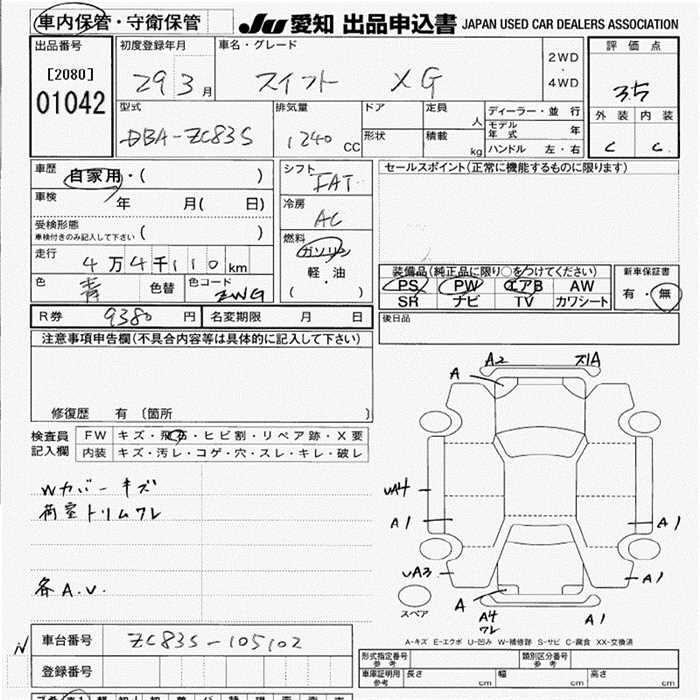 車内保管・守衛保管
JU 愛知 出品申込書 JAPAN USED CAR DEALERS ASSOCIATION
出品番号
[2080]
01042
初度登録年月
29 3月
車名・グレード
スイフト XG
2WD
・
4WD
評価点
3.5
外装 内装
C C
型式
DBA-ZC83S
排気量
1240 CC
ドア
形状
定員 人
積載 kg
ディーラー・並行
モデル年式 年
ハンドル 左・右
車歴
自家用・( )
車検 年 月( 日)
受検形態
車検付きのみ記入して下さい ( )
走行
4万4千110km
色 青 色替 色コード ZWG
シフト
FAT
冷房
AC
燃料
ガソリン
軽・油
( )
セールスポイント(正常に機能するものに限ります)
装備品(純正品に限り○をつけてください)
PS PW エアB AW
SR ナビ TV カワシート
新車保証書
有・無
R券 9380円 名変期限 月 日
後日品
注意事項申告欄(不具合内容等は具体的に記入して下さい)
修復歴 有〔箇所 〕
検査員
記入欄
FW キズ・飛石・ヒビ割・リペア跡・X要
内装 キズ・汚レ・コゲ・穴・スレ・キレ・破レ
Wカバーキズ
荷室トリムワレ
各A.U.
A2
A
uA4
A1
A1
uA3
A1
A
A4
ワレ
A1
スペア
A-キズ E-エクボ U-凹み W-補修跡 S-サビ C-腐食 XX-交換済
N
車台番号 ZC83S-105102
登録番号
形式指定番号
参考
類別区分番号
参考
車庫証明用
参考
長さ cm 幅 cm 高さ cm